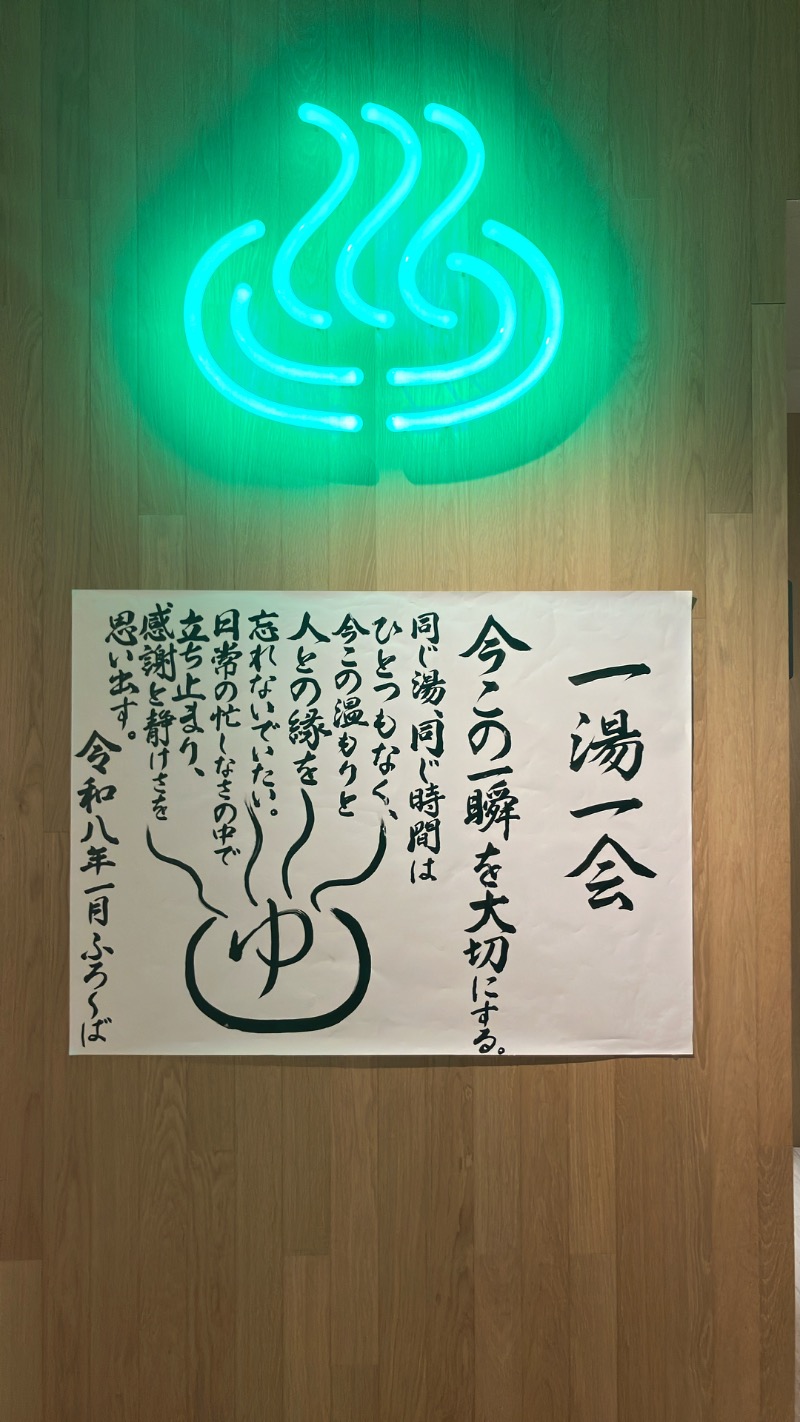 一湯一会
今この一瞬を大切にする。
同じ湯、同じ時間は
ひとつもなく、
今この温もりと
人との縁を
忘れないでいたい。
日常の忙しなさの中で
立ち止まり、
感謝と静けさを
思い出す。
令和八年一月ふろくば
ゆ